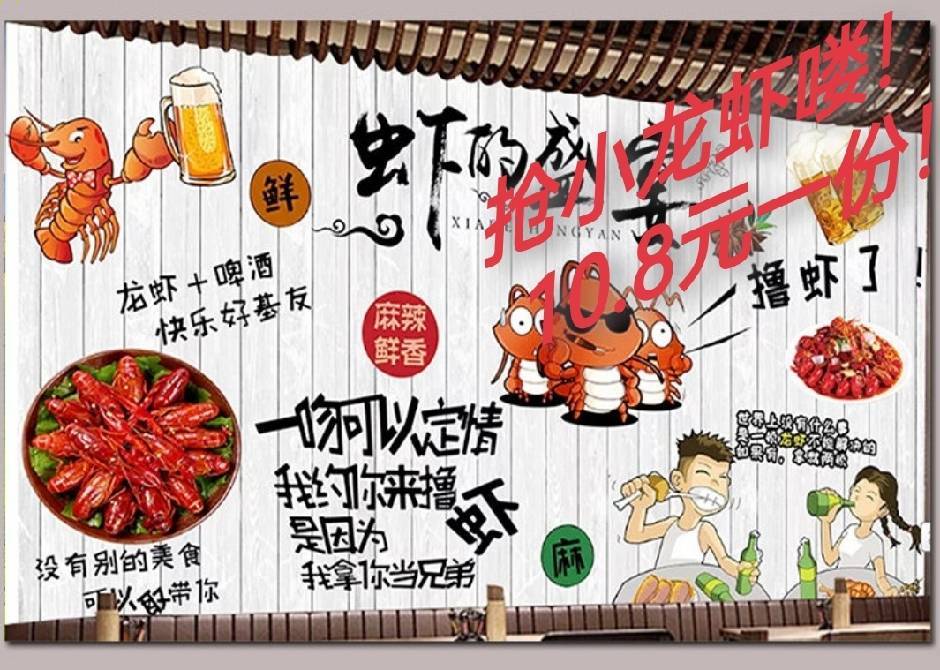 抢小龙虾喽！
10.8元一份！
虾的盛宴
鲜
龙虾＋啤酒
快乐好基友
麻辣
鲜香
撸虾了！
一吻可以定情
我约你来撸虾
是因为
我拿你当兄弟
世界上没有什么事
是一顿龙虾不能解决的
如果有，拿就两顿
麻
没有别的美食
可以取带你